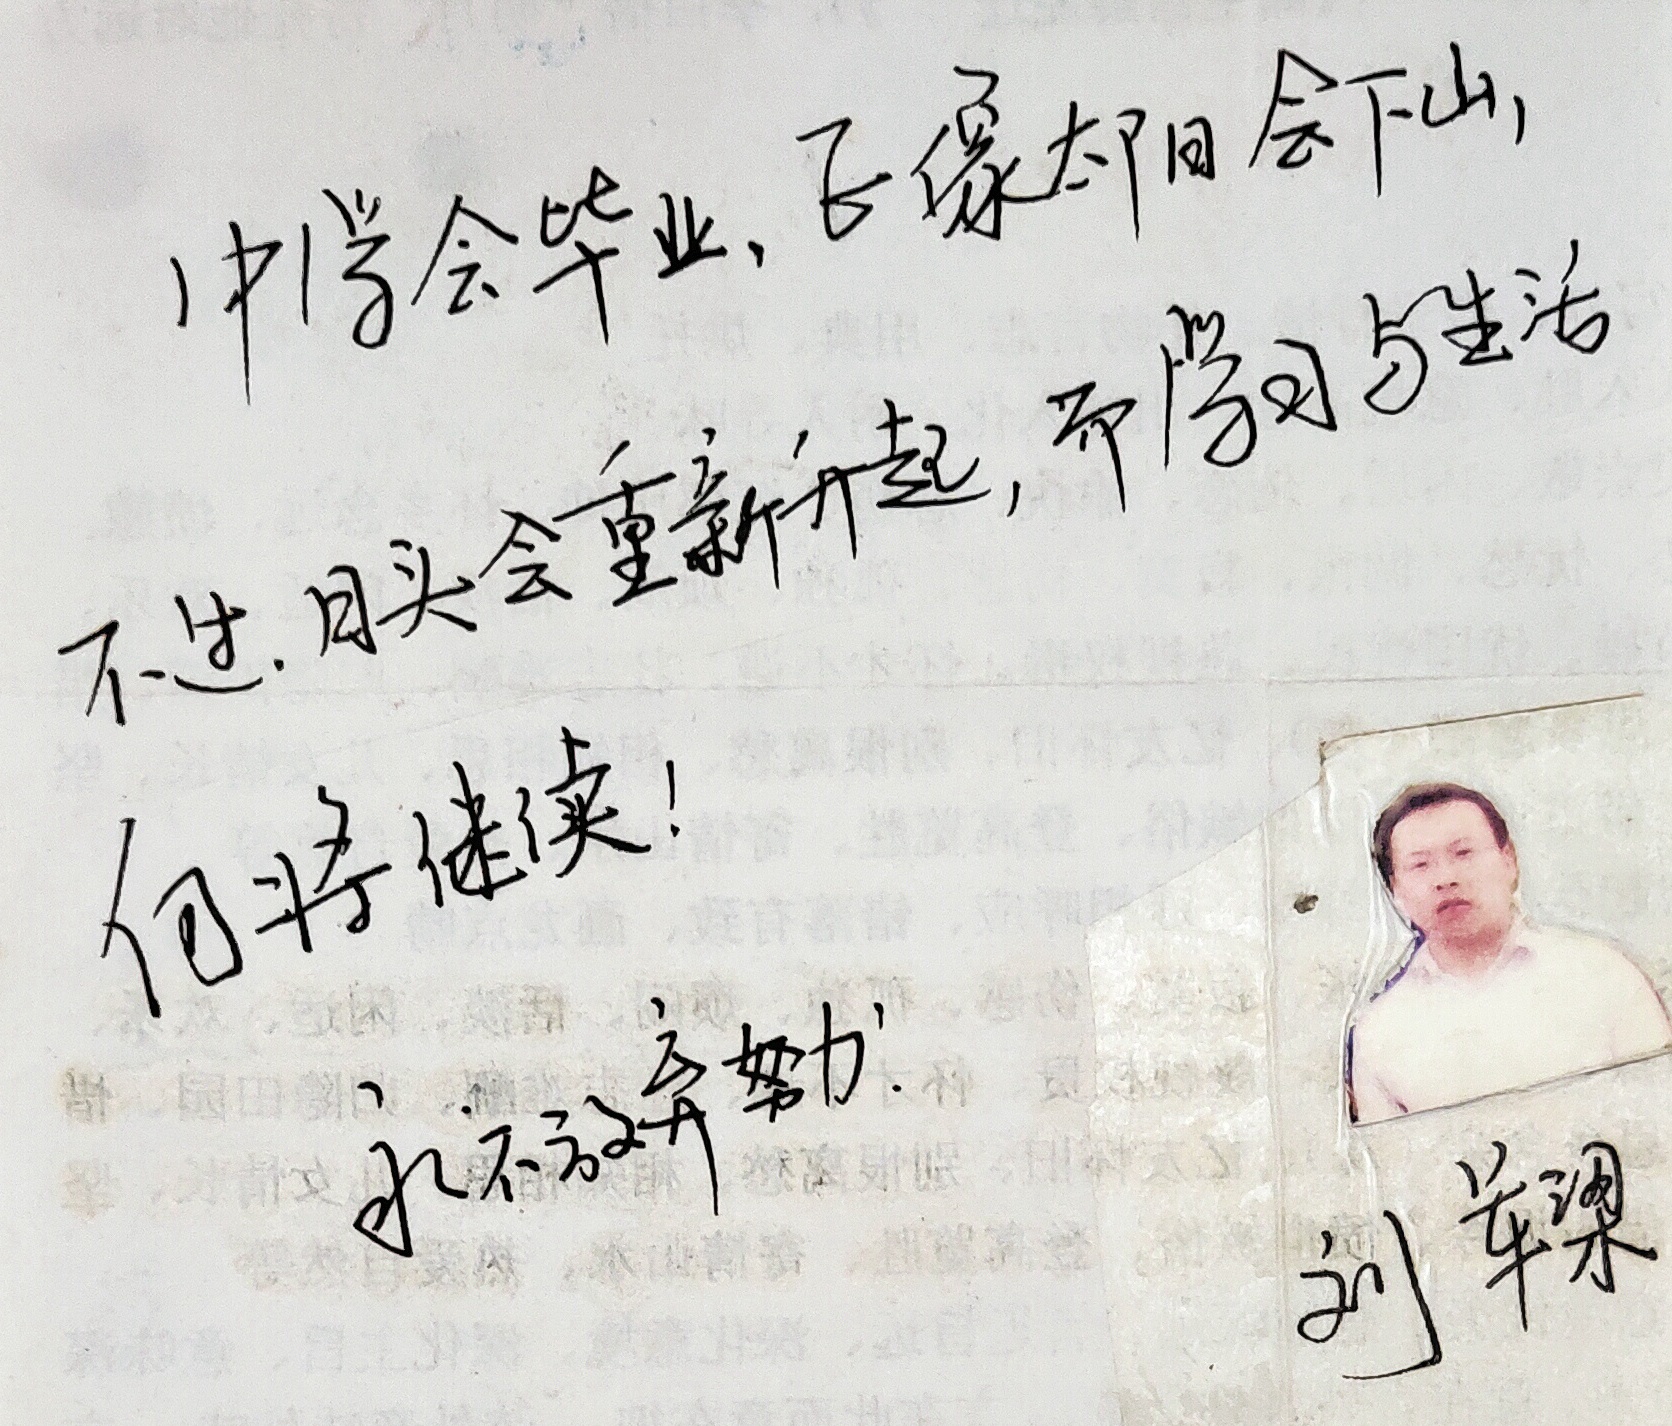 中学会毕业、正像太阳会下山,
不过.日头会重新升起,而学习与生活
仍将继续!
永不放弃努力.
刘军梁